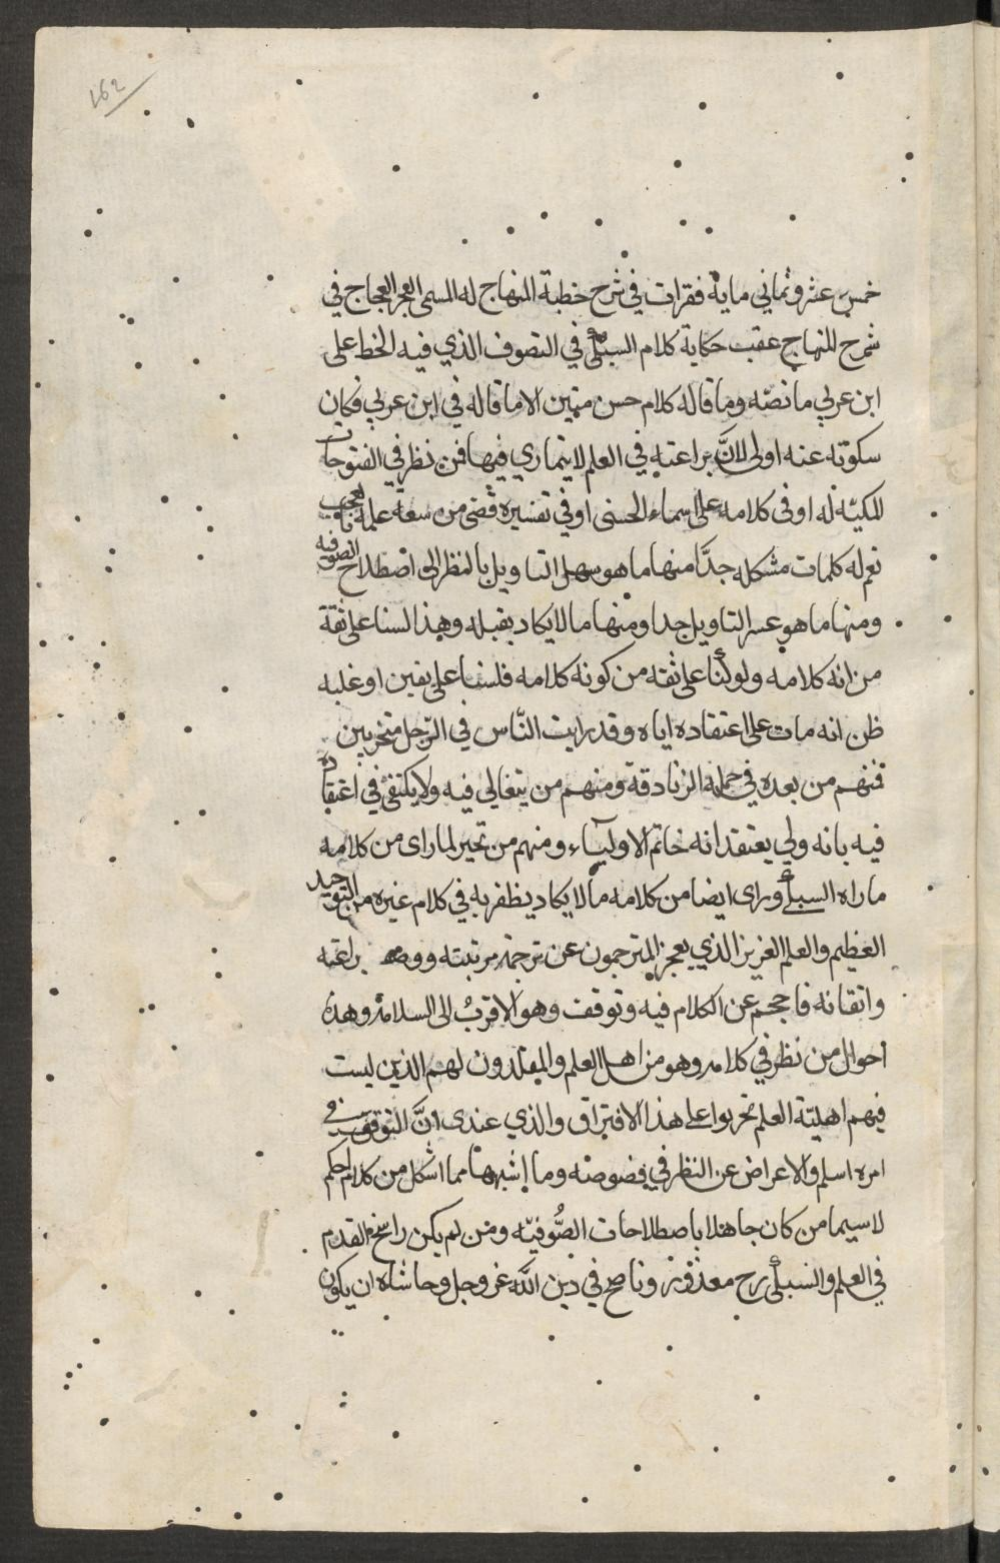 ١٤٢
خمس عشر وثماني ماية فقرات في شرح خطبة المنهاج له المسمى البحر العجاج في
شرح المنهاج عقب حكاية كلام السبكي في التصوف الذي فيه الحط على
ابن عربي ما نصّه وما قاله كلام حسن متين الا ما قاله في ابن عربي فكان
سكوته عنه اولى لانَّ براعته في العلم لا يتمارى فيها فمن نظر في الفتوحات
المكيّة له او في كلامه على اسماء الحسنى او في تفسيره قضى من سعة علمه بالعجب
نعم له كلمات مشكله جدّا منها ما هو سهل التاويل بالنظر الى اصطلاح الصوفيه
ومنها ما هو عسر التاويل جدا ومنها ما لا يكاد يقبله وهذا لسنا على ثقة
من انه كلامه ولو كنا على ثقه من كونه كلامه فلسنا على يقين او غلبه
ظن انه مات على اعتقاده اياه وقد رايت النّاس في الرّجل متحزبين
فمنهم من يعده في جملة الزنادقة ومنهم من يتغالى فيه ولا يكتفي في اعتقاده
فيه بانه ولي يعتقد انه خاتم الاولياء ومنهم من تحير لما راى من كلامه
ما راه السبكي وراى ايضا من كلامه ما لا يكاد يظفر به في كلام غيره من التوحيد
العظيم والعلم الغزير الذي يعجز المترجمون عن ترجمة مرتبته ووصف براعته
واتقانه فاحجم عن الكلام فيه وتوقف وهو الاقربُ الى السلامة وهذه
احوال من نظر في كلامه وهو من اهل العلم والمقلدون لهم الذين ليست
فيهم اهليّة العلم تحزبوا على هذا الافتراق والذي عندى انَّ التوقف في
امره اسلم والاعراض عن النظر في فصوصه وما اشبهها مما اشكل من كلامه احكم
لا سيما من كان جاهلا باصطلاحات الصُّوفيّه ومن لم يكن راسخ القدم
في العلم والسبكي رح معذور وناصح في دين الله عز وجل وحاشاه ان يكون